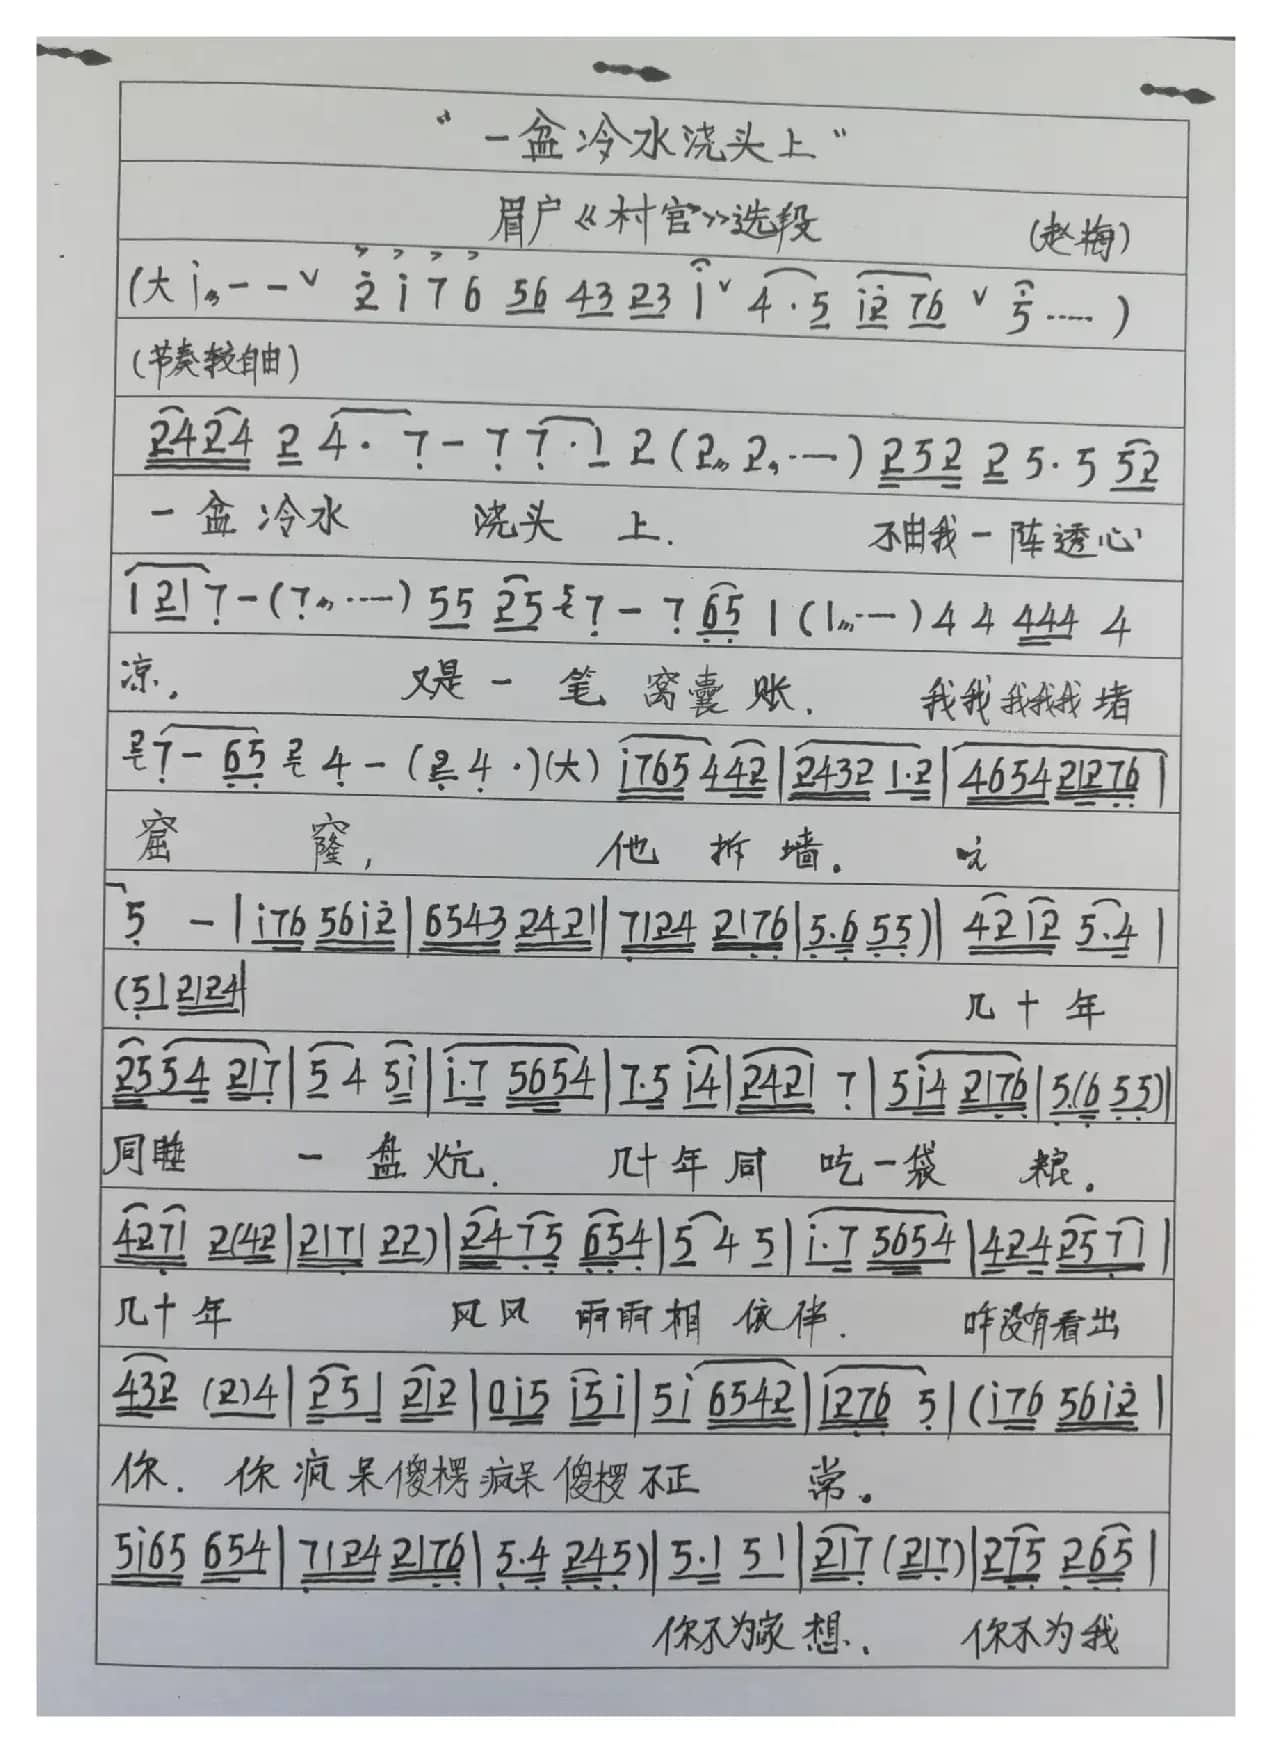 “一盆冷水浇头上”
眉户《村官》选段 (赵梅)
(大 i〃 - - ∨ 2̇ i 7 6 56 43 23 i ∨ 4·5 i2̇ 76 ∨ 5 ····· )
(节奏较自由)
2424 2 4· 7 - 7 7·1 2 (2〃 2, ·····) 252 2 5·5 52
一盆冷水 浇头 上. 不由我一阵透心
1 21 7 - (7〃 ·····) 55 25 7 - 7 65 1 (1〃 ·····) 4 4 444 4
凉. 又是一 笔 窝囊 账. 我我我我我堵
7 - 65 4 - (2 4 ·)(大) i765 442 | 2432 1·2 | 4654 2176 |
窟 窿, 他 拆 墙.
5 - | i76 56i2̇ | 6543 2421 | 7124 2176 | 5·6 55) | 42 12 5·4 |
(51 2124|
几 十 年
2554 217 | 5 4 5i | i·7 5654 | 7·5 i4 | 2421 7 | 5i4 2176 | 5·(6 55) |
同睡 一 盘 炕. 几十年同 吃一袋 粮.
4271 2(42 | 2171 22) | 2475 654 | 5 4 5 | i·7 5654 | 424 2571 |
几十年 风风 雨雨相 依伴. 咋没有看出
432 (2)4 | 251 212 | 0i5 i5i | 5i 6542 | 1276 5 | (i76 56i2̇ |
你. 你疯呆傻楞疯呆傻楞不正 常.
5i65 654 | 7124 2176 | 5·4 245) | 5·1 51 | 217 (217) | 275 265 |
你不为家想. 你不为我